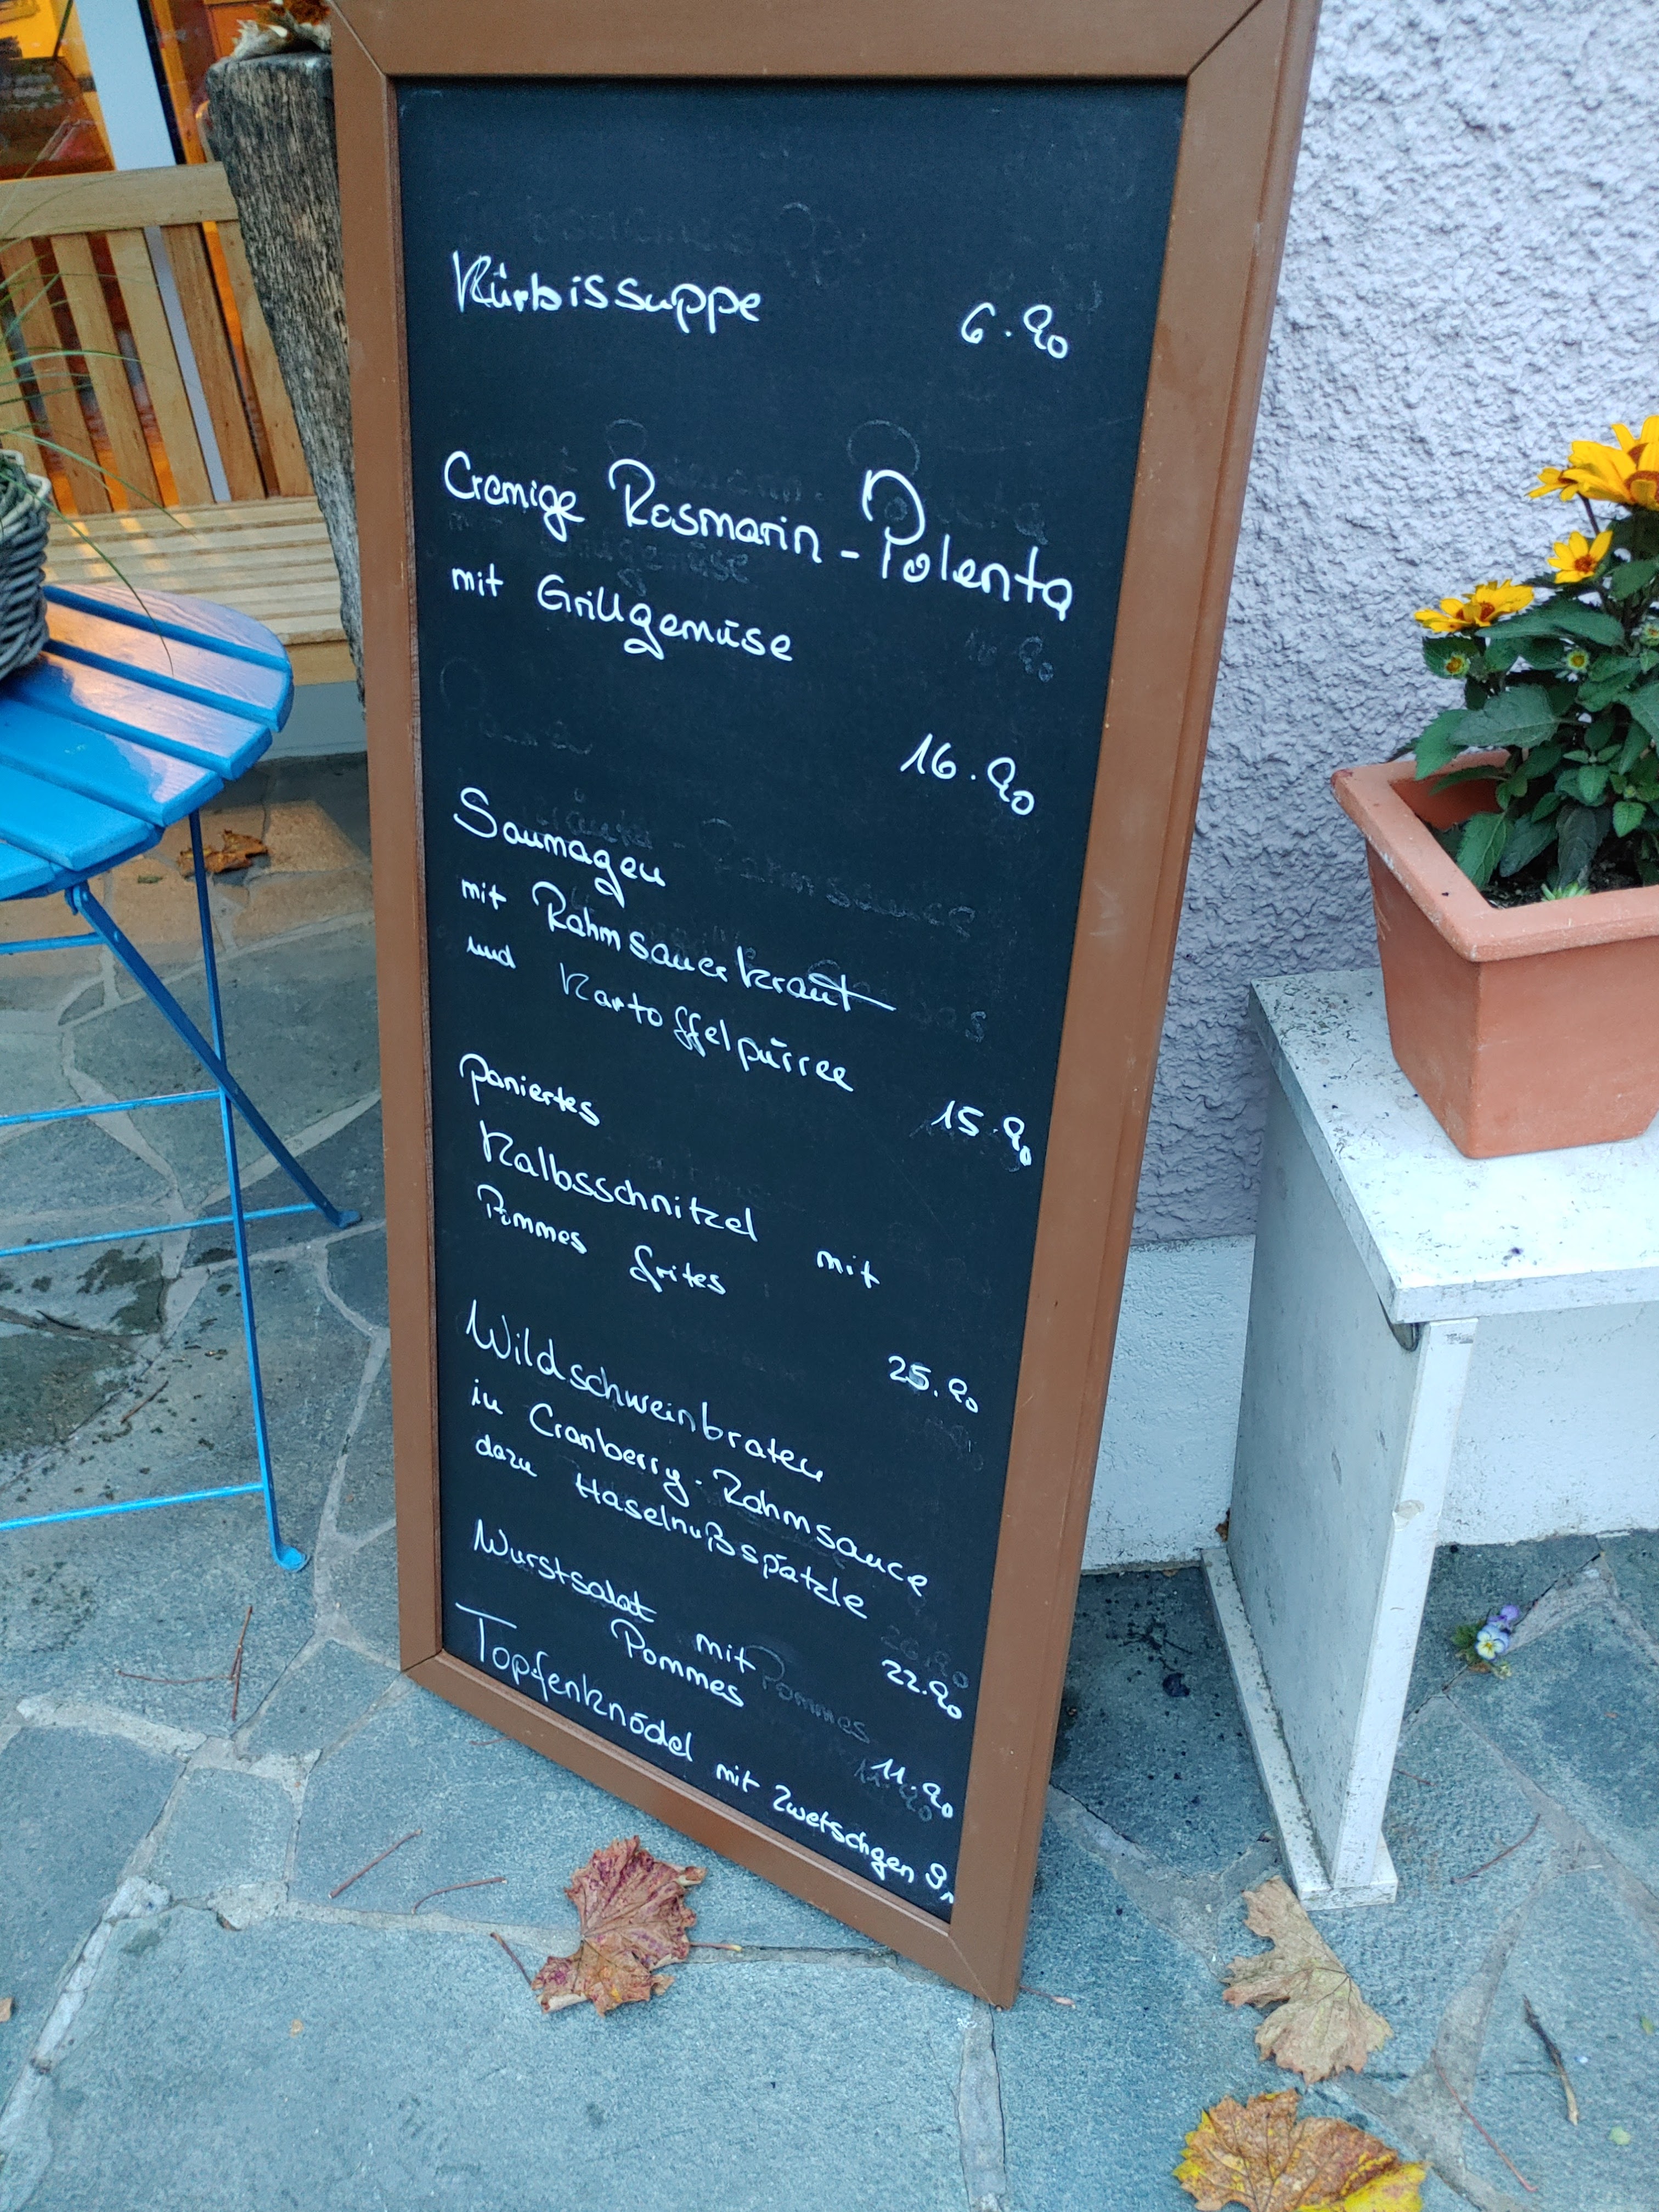 Kürbissuppe 6.90
Cremige Rosmarin-Polenta
mit Grillgemüse
16.90
Saumagen
mit Rahmsauerkraut
und Kartoffelpürree
15.90
paniertes
Kalbsschnitzel mit
Pommes frites
25.90
Wildschweinbraten
in Cranberry-Rahmsauce
dazu Haselnußspätzle
22.90
Wurstsalat mit
Pommes
11.90
Topfenknödel mit Zwetschgen